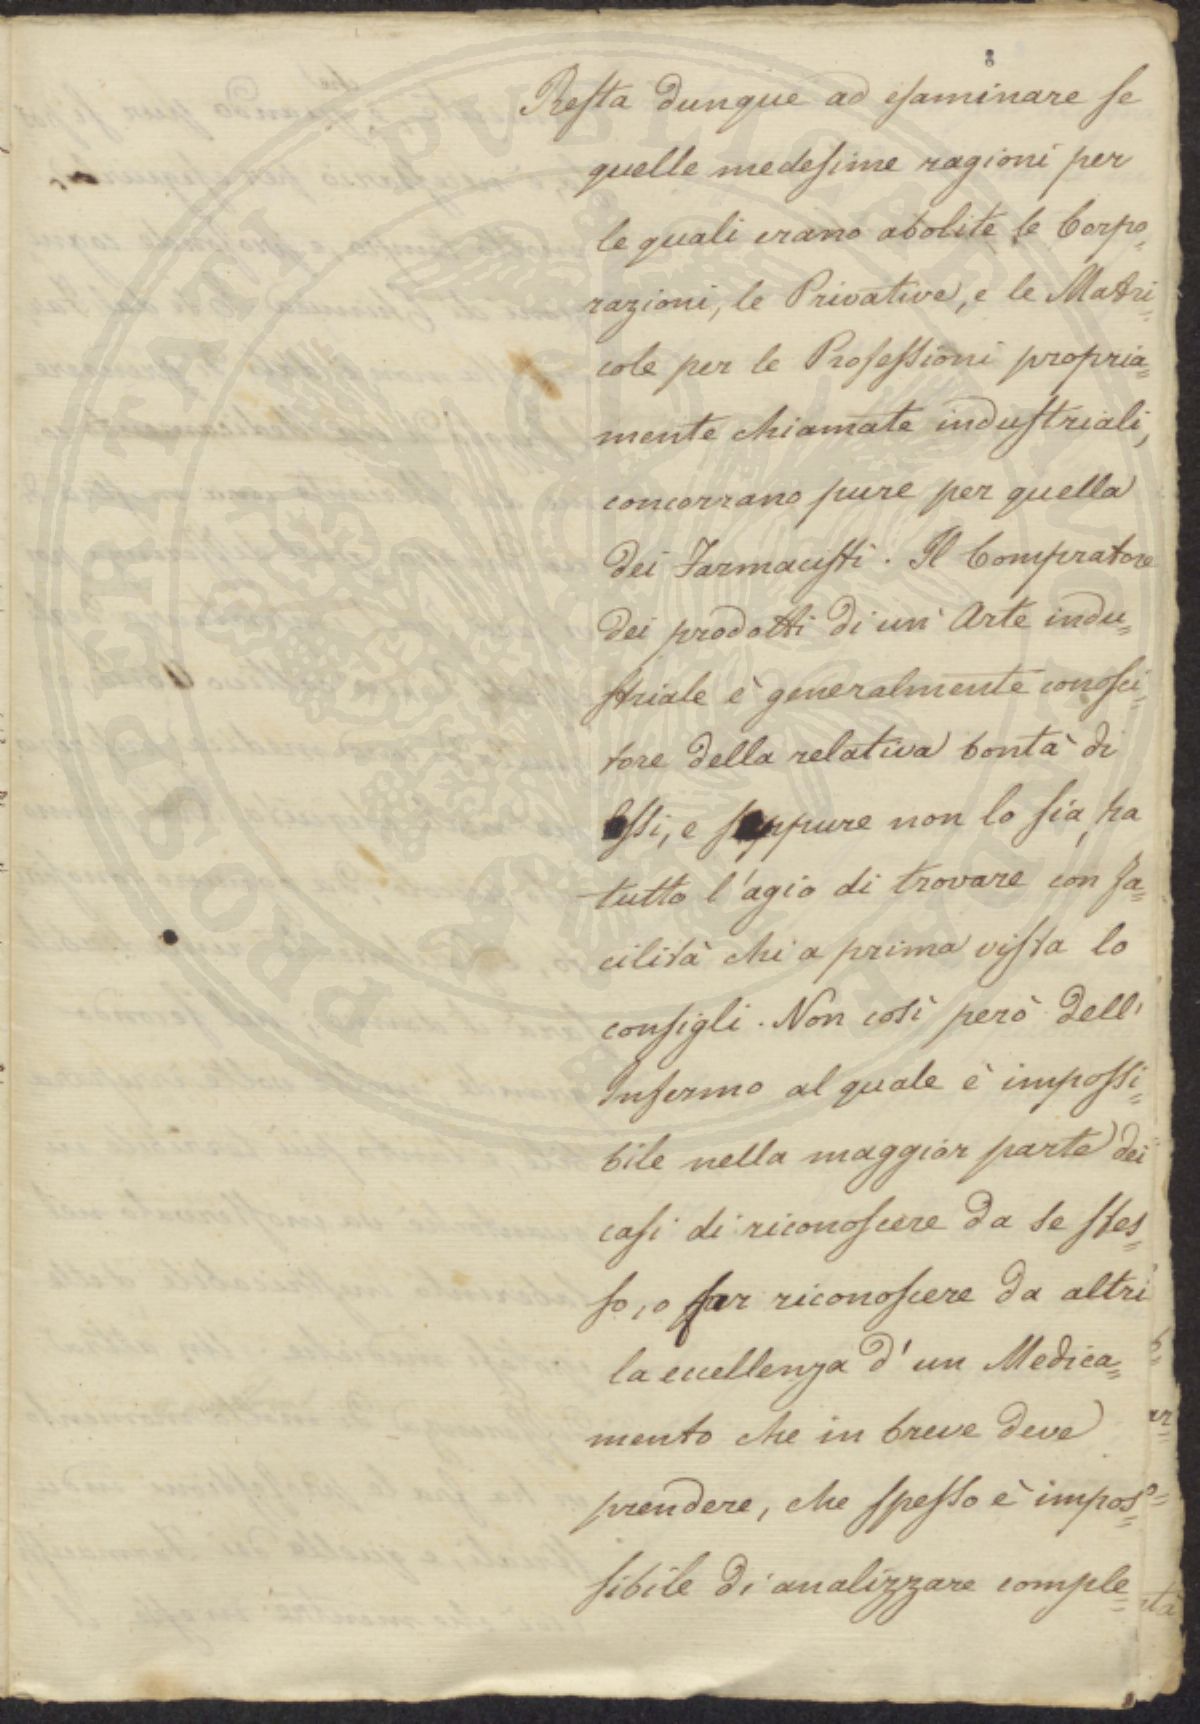 8
Resta dunque ad esaminare se
quelle medesime ragioni per
le quali erano abolite le Corpo=
razioni, le Privative, e le Matri=
cole per le Professioni propria=
mente chiamate industriali,
concorrano pure per quella
dei Farmacisti. Il Compratore
dei prodotti di un' Arte indu=
striale è generalmente conosci=
tore della relativa bontà di
essi, e seppure non lo sia, ha
tutto l'agio di trovare con fa=
cilità chi a prima vista lo
consigli. Non così però dell'
Infermo al quale è impossi=
bile nella maggior parte dei
casi di riconoscere da se stes=
so, o far riconoscere da altri
la eccellenza d'un Medica=
mento che in breve deve
prendere, che spesso è impos=
sibile di analizzare comple=
PROSPERITATI PUBLICAE AUGENDAE